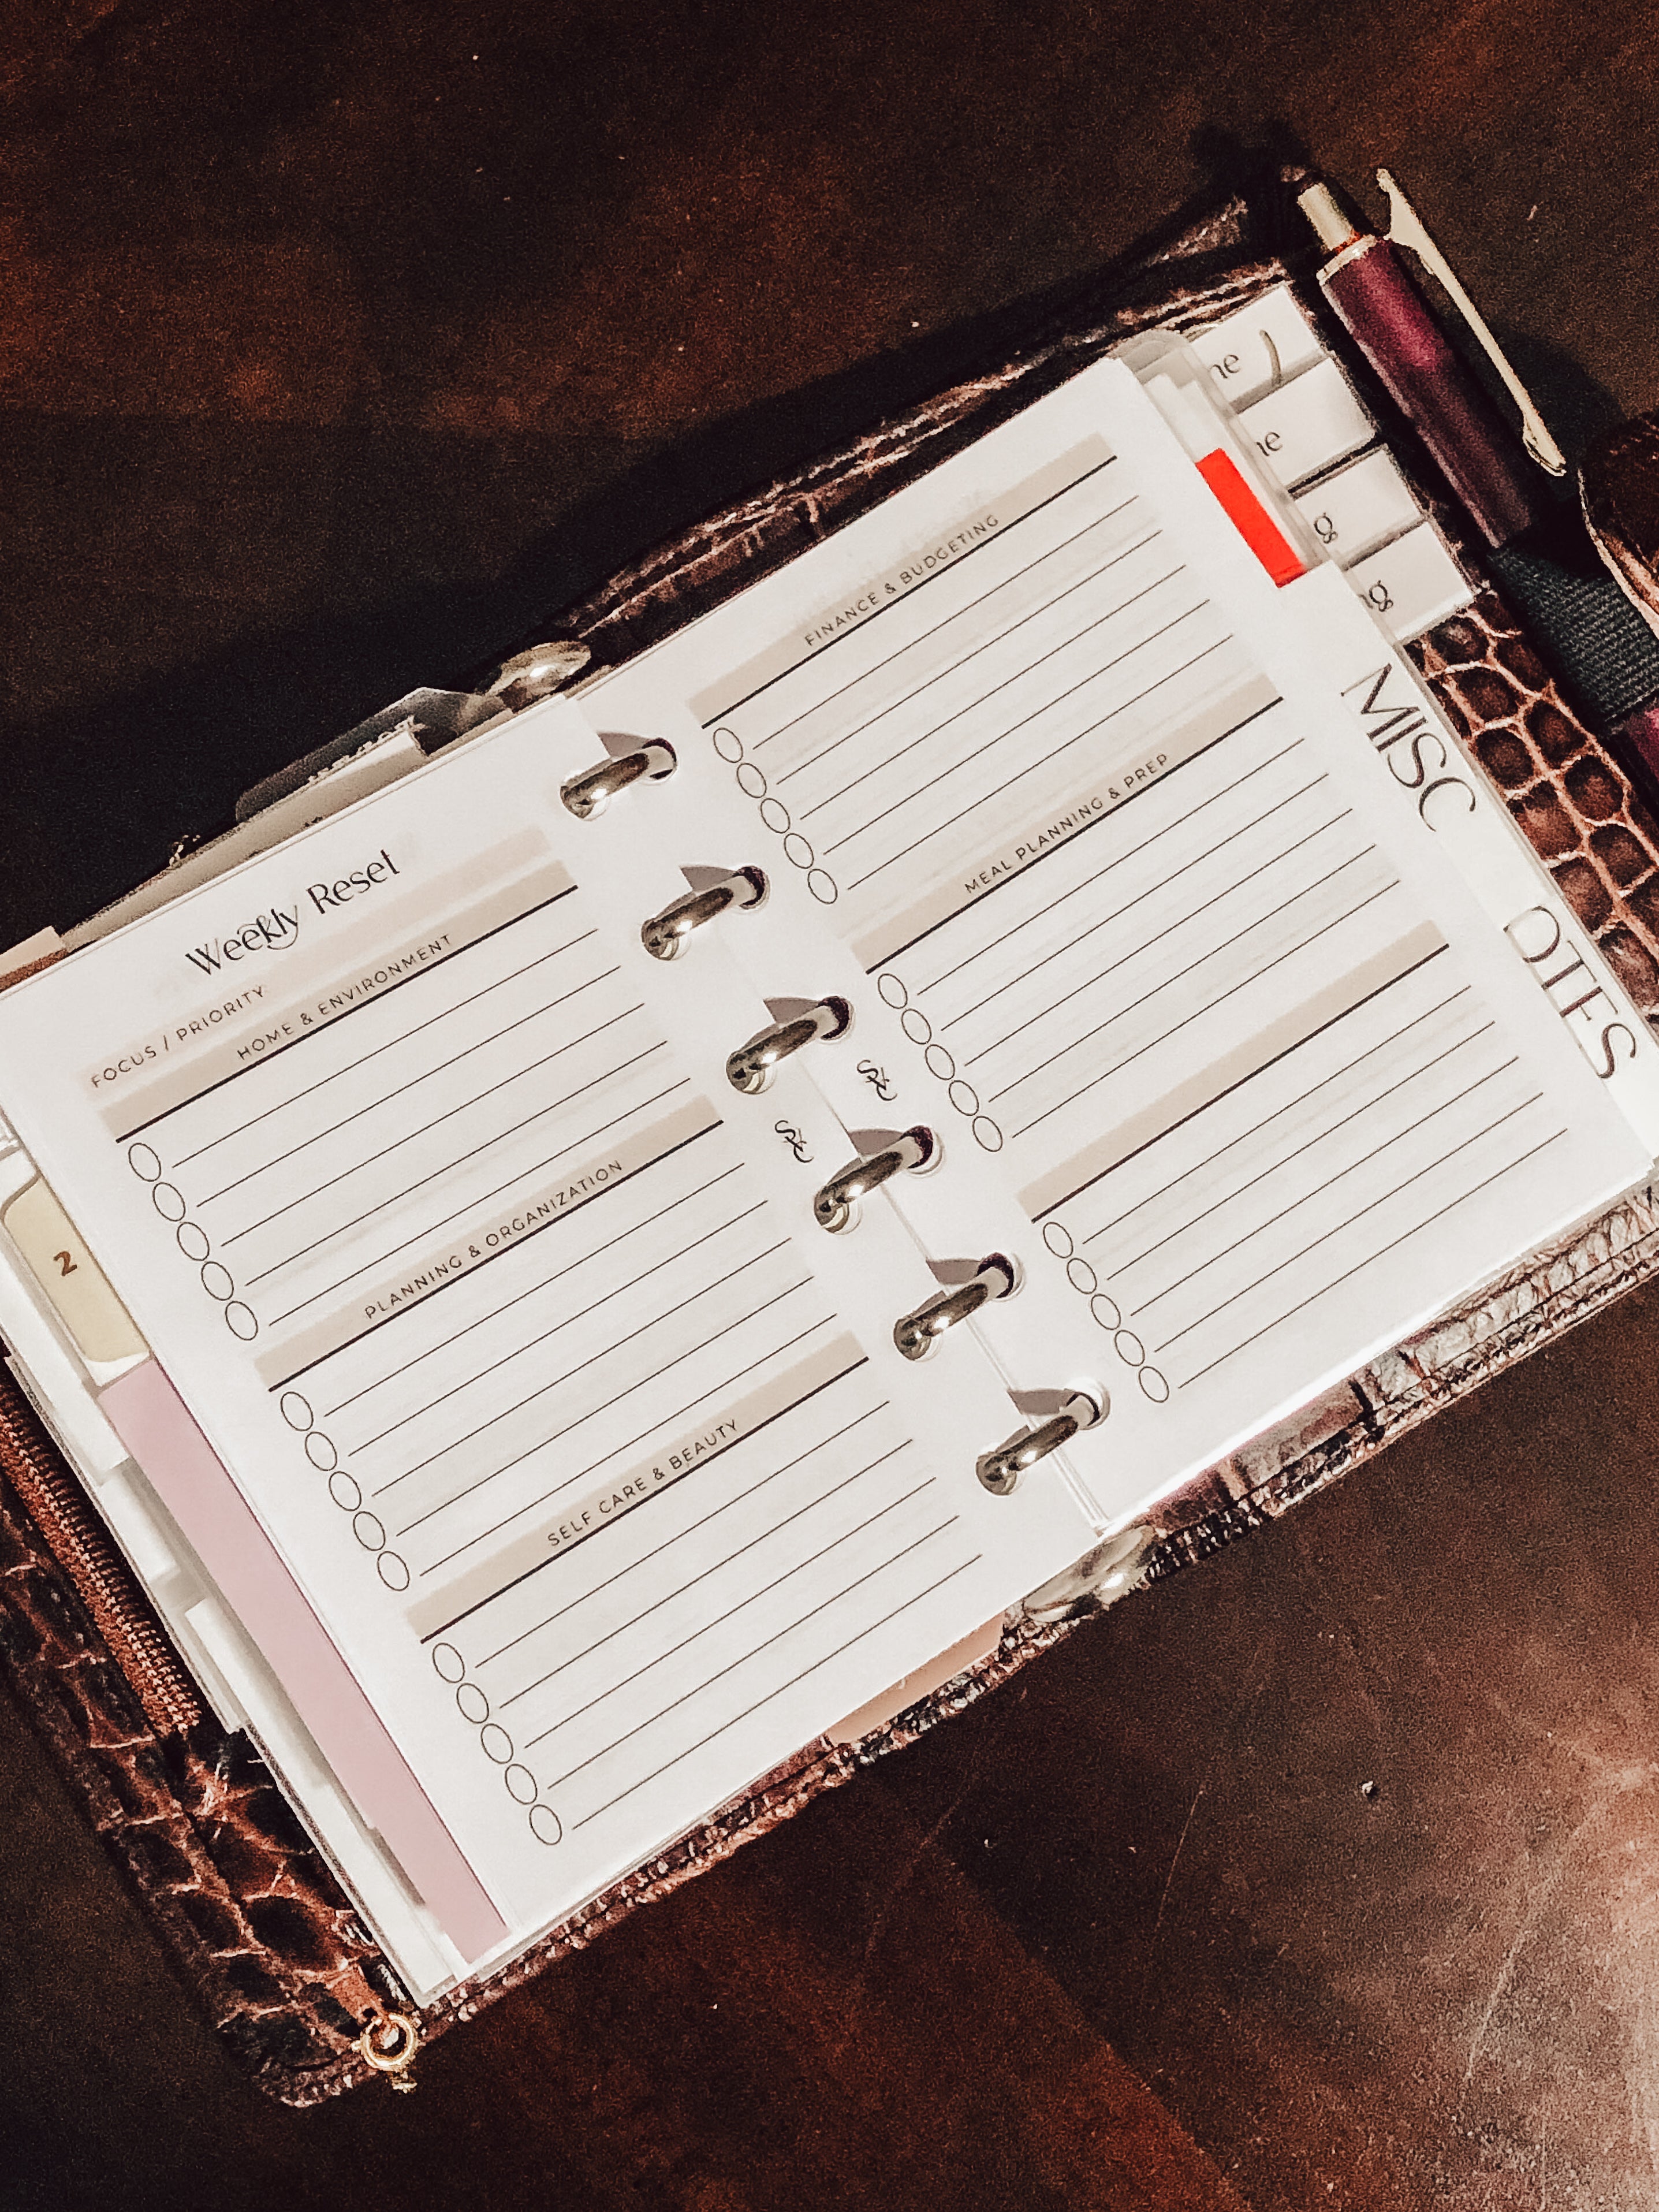 Weekly Reset
FOCUS / PRIORITY
HOME & ENVIRONMENT
PLANNING & ORGANIZATION
SELF CARE & BEAUTY
FINANCE & BUDGETING
MEAL PLANNING & PREP
MISC
2